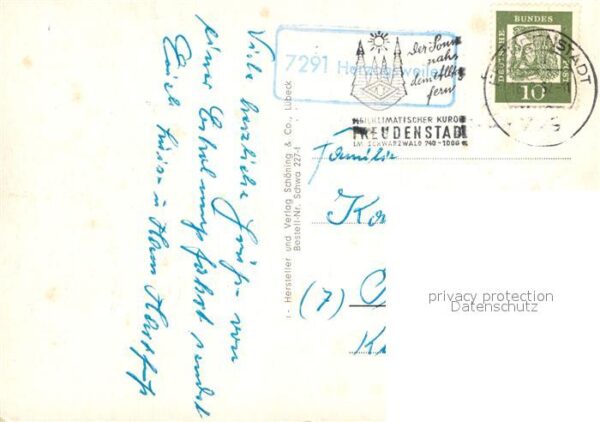 Viele herzliche Grüße von
einer Erholungsfahrt sendet
Euch Luise u. Hermann
- Hersteller und Verlag Schöning & Co., Lübeck
Bestell-Nr. Schwa 227-1
7291 Herzogsweiler
Der Sonne
nahe
dem Alltag
fern
HEILKLIMATISCHER KURORT
FREUDENSTADT
IM SCHWARZWALD 740-1000
DEUTSCHE BUNDESPOST
10
FREUDENSTADT
Familie
Ka
(7)
K
privacy protection
Datenschutz